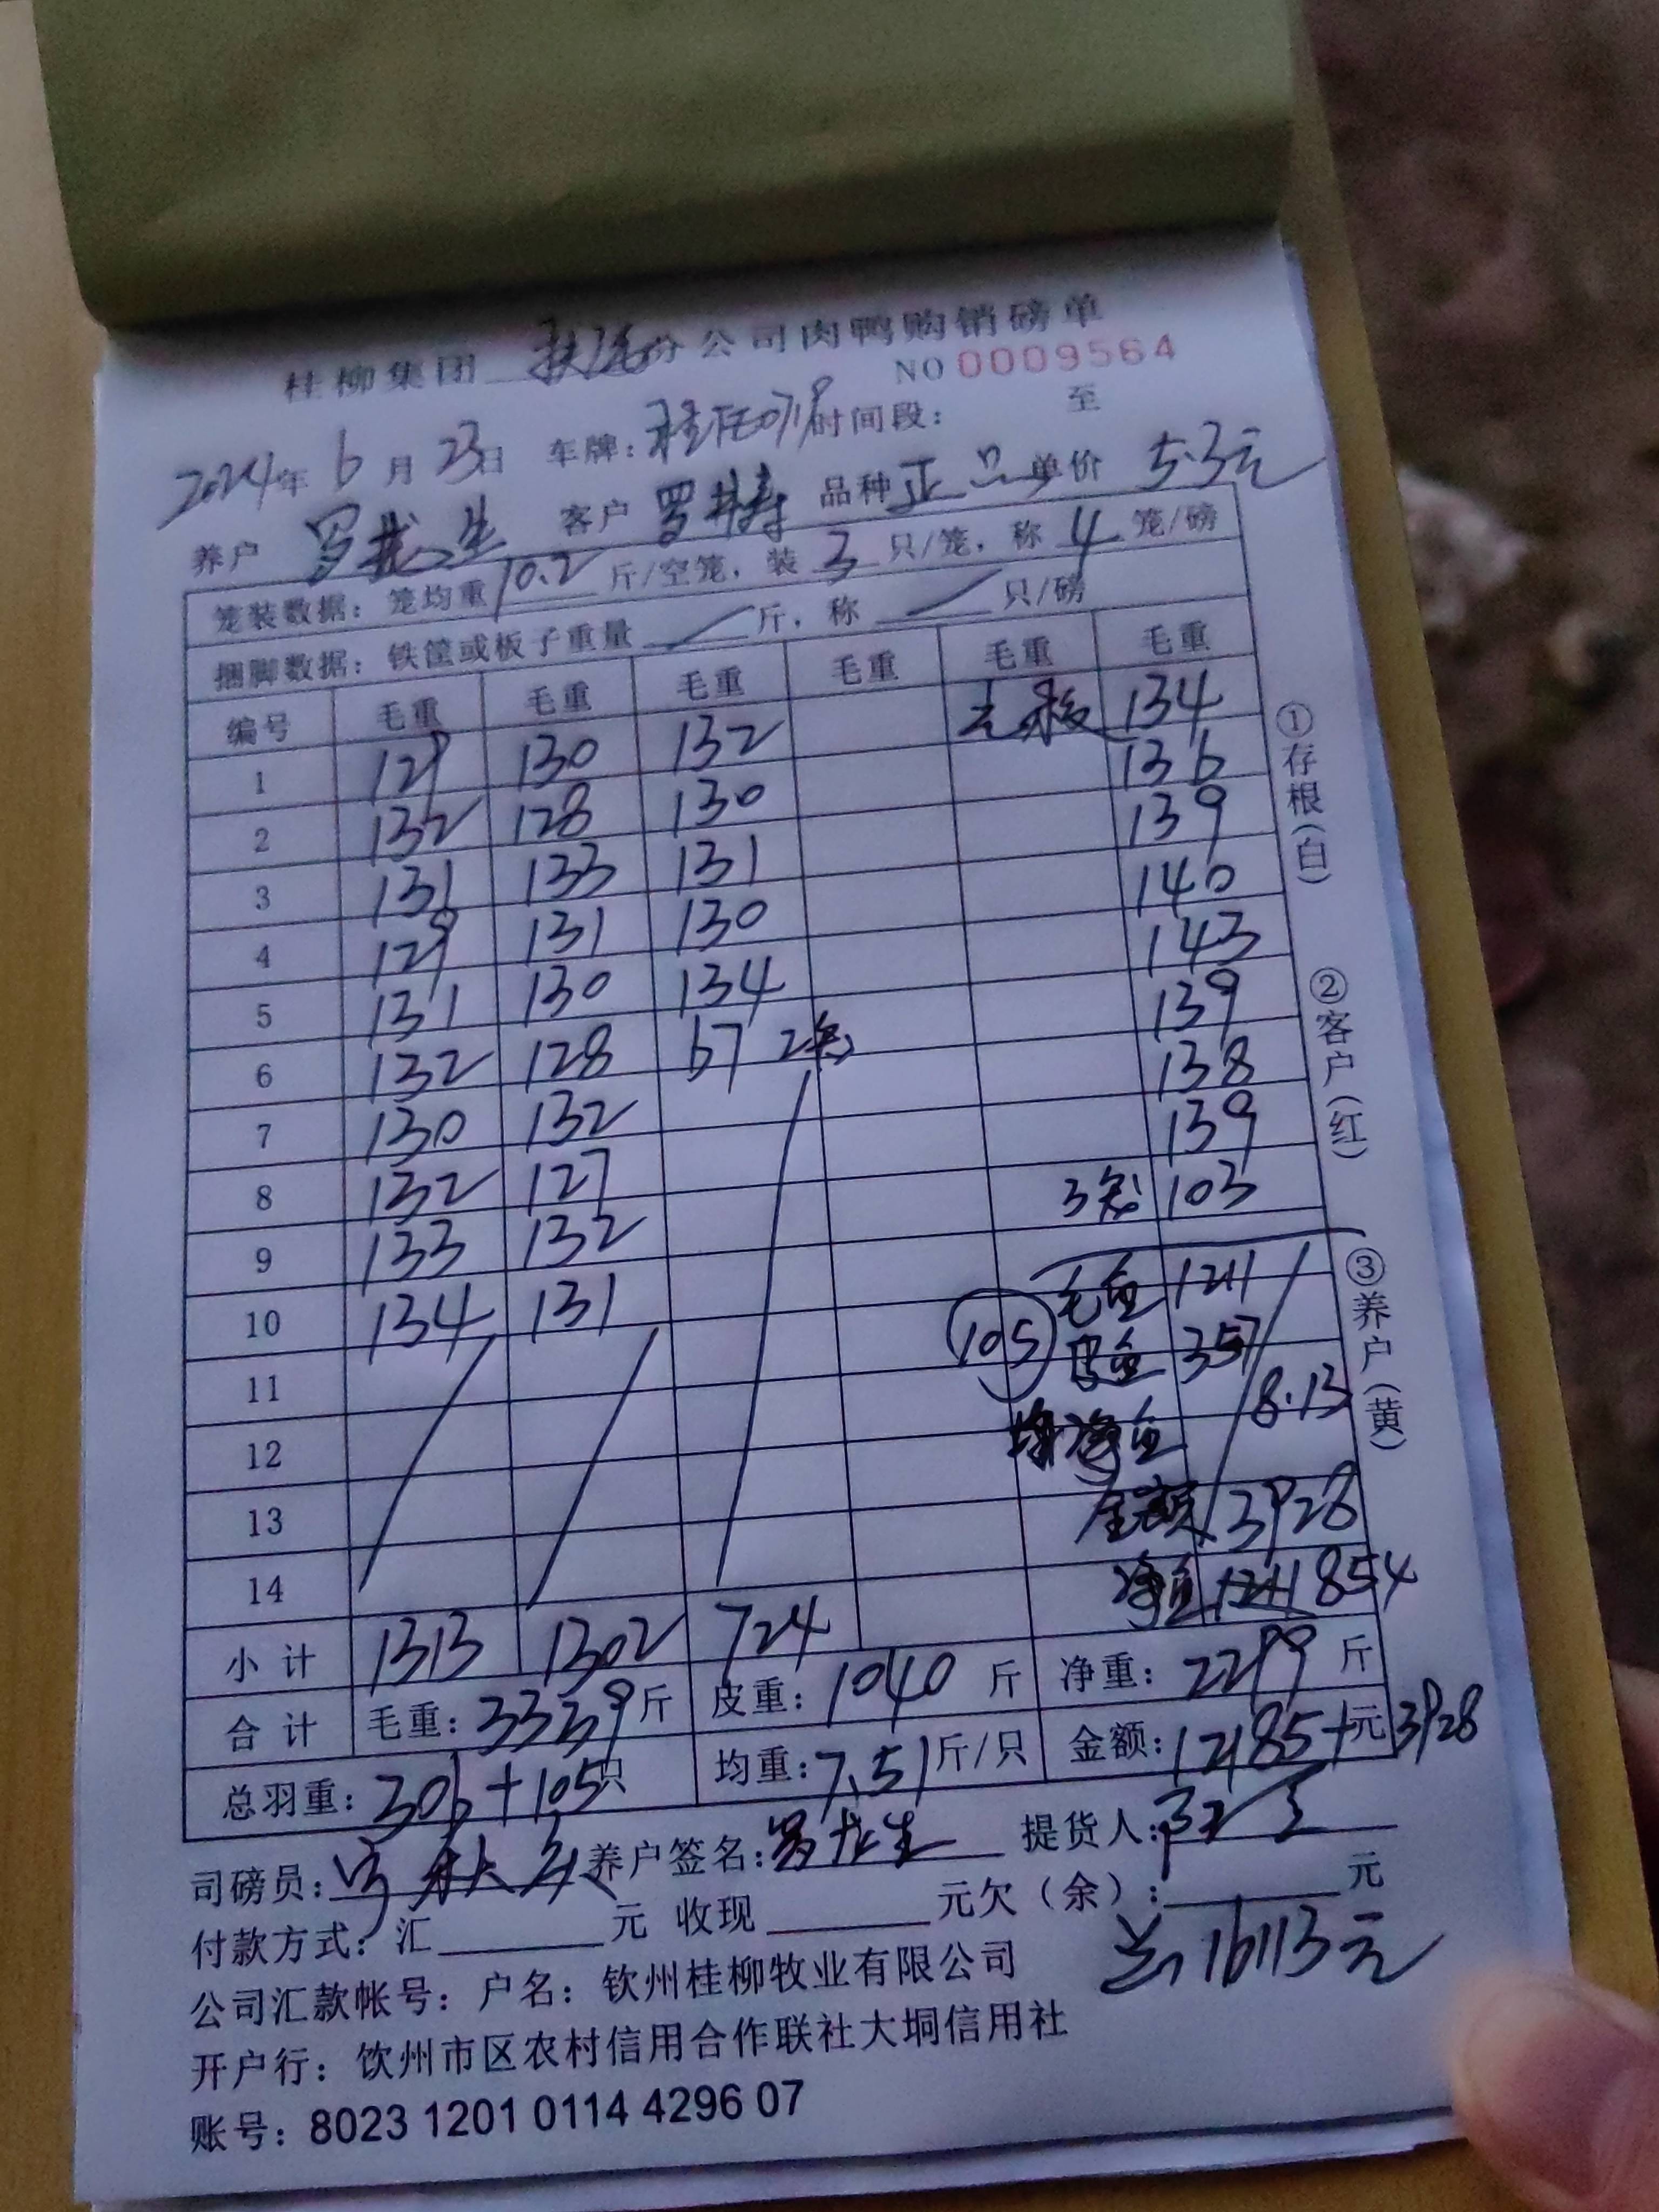 桂柳集团 分公司肉鸭购销磅单
NO 0009564
2024年 6 月 23日 车牌: 时间段: 至
养户 罗龙生 客户 罗 品种 正品 单价 5.3元
笼装数据:笼均重 10.2 斤/空笼,装 3 只/笼,称 4 笼/磅
捆脚数据:铁筐或板子重量 / 斤,称 / 只/磅
编号 毛重 毛重 毛重 毛重 毛重 毛重
1 129 130 132 134
2 132 128 130 136
3 131 133 131 139
4 129 131 130 140
5 131 130 134 143
6 132 128 67 2笼 139
7 130 132 138
8 132 127 139
9 133 132 3笼 103
10 134 131 毛重 1211
11 105 皮重 357
12 均净重 8.13
13 金额 3928
14 净重 854
小计 1313 1302 724
合计 毛重: 3339 斤 皮重: 1040 斤 净重: 2299 斤
总羽重: 306+105只 均重: 7.51 斤/只 金额: 12185+元 3928
司磅员: 养户签名: 罗龙生 提货人:
付款方式:汇 元 收现 元欠(余): 元
共 16113元
公司汇款帐号:户名:钦州桂柳牧业有限公司
开户行:钦州市区农村信用合作联社大垌信用社
账号:8023 1201 0114 4296 07
①存根(白)
②客户(红)
③养户(黄)